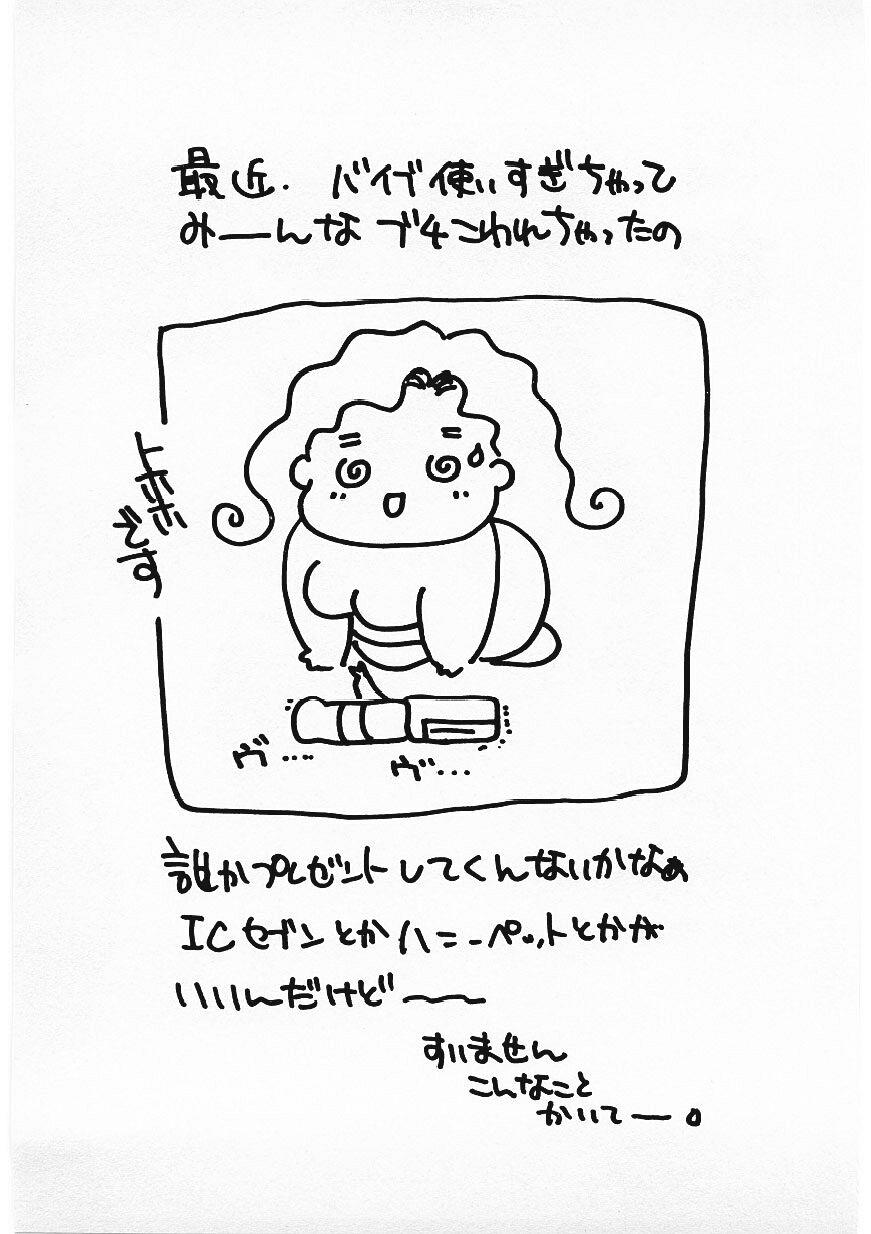 最近．バイブ使いすぎちゃって
みーんなブチこわれちゃったの
トホホです
ヴ････
ヴ･･･
誰かプレゼントしてくんないかなぁ
ICセブンとかハニーペットとかが
いいんだけど〜〜
すいません
こんなこと
かいてー。